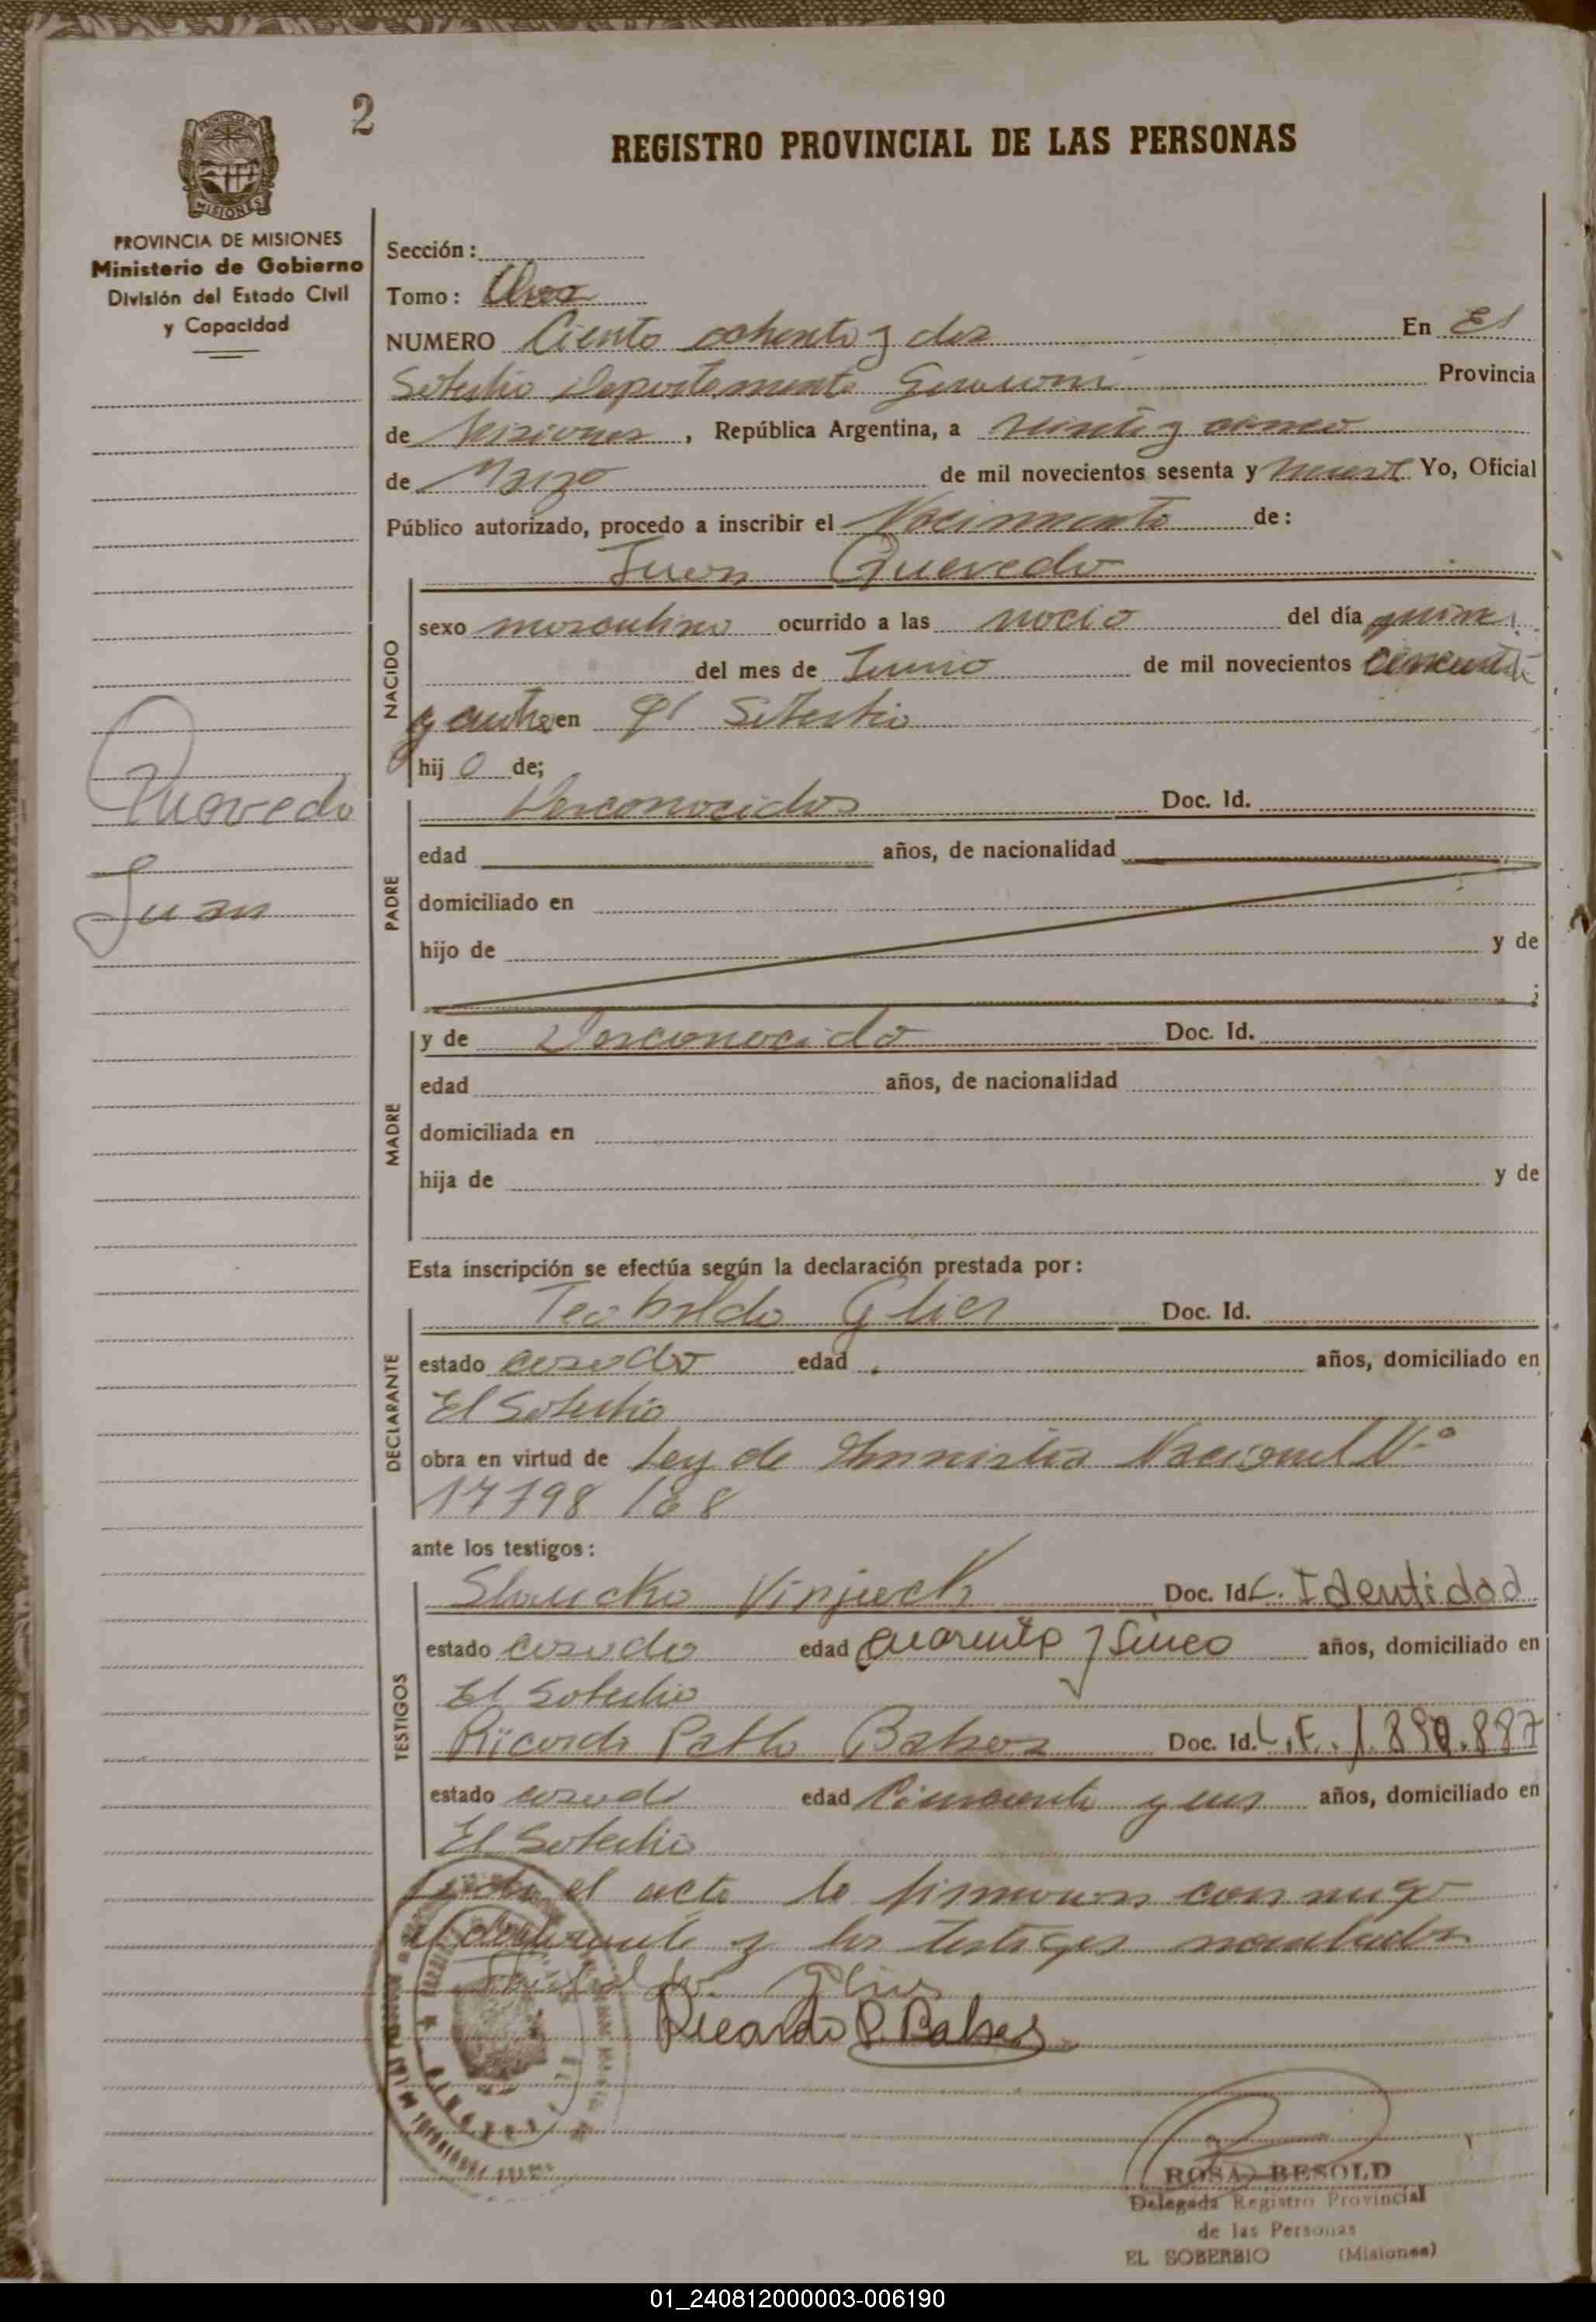 2
REGISTRO PROVINCIAL DE LAS PERSONAS
MISIONES
PROVINCIA DE MISIONES
Ministerio de Gobierno
División del Estado Civil
y Capacidad
Quevedo
Juan
Sección:
Tomo:
NUMERO Ciento ochenta y dos En El
Soberbio Departamento Guarani Provincia
de Misiones, República Argentina, a veinte y cinco
de Marzo de mil novecientos sesenta y nueve Yo, Oficial
Público autorizado, procedo a inscribir el Nacimiento de:
Juan Quevedo
NACIDO
sexo masculino ocurrido a las del día
del mes de Junio de mil novecientos cincuenta
y en El Soberbio
hij o de;
PADRE
Desconocidos Doc. Id.
edad años, de nacionalidad
domiciliado en
hijo de y de
;
MADRE
y de Desconocido Doc. Id.
edad años, de nacionalidad
domiciliada en
hija de y de
Esta inscripción se efectúa según la declaración prestada por:
DECLARANTE
Teobaldo Glier Doc. Id.
estado casado edad años, domiciliado en
El Soberbio
obra en virtud de Ley de Amnistia Nacional N°
17798/68
ante los testigos:
TESTIGOS
Doc. Id. C. Identidad
estado casado edad cuarenta y Sinco años, domiciliado en
El Soberbio
Ricardo Pablo Doc. Id. L.E. 1.890.887
estado casado edad Cincuenta y un años, domiciliado en
El Soberbio
el acta la firmaron conmigo
el declarante y los testigos nombrados
Ricardo P.
ROSA BESOLD
Delegada Registro Provincial
de las Personas
EL SOBERBIO (Misiones)
01_240812000003-006190